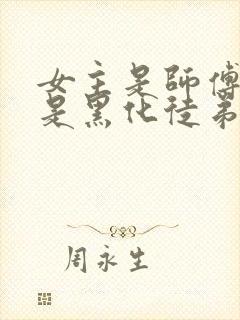 女主是師傅
是黑化徒弟
周永生